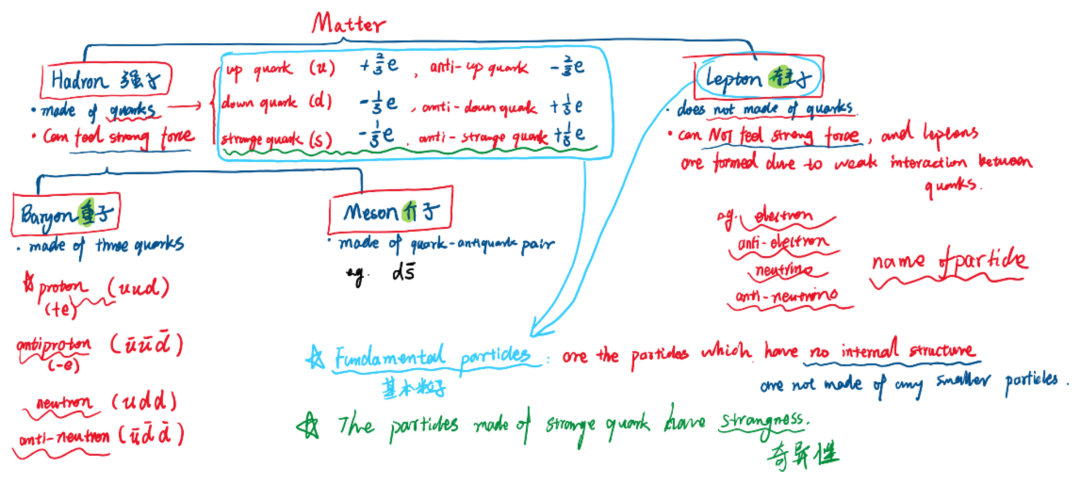 Matter
Hadron 强子
• made of quarks
• can feel strong force
up quark (u) +2/3e , anti-up quark -2/3e
down quark (d) -1/3e , anti-down quark +1/3e
strange quark (s) -1/3e , anti-strange quark +1/3e
Lepton 轻子
• does not made of quarks
• can NOT feel strong force, and leptons
are formed due to weak interaction between
quarks.
eg. electron
anti-electron
neutrino
anti-neutrino
name of particle
Baryon 重子
• made of three quarks
☆ proton (uud)
(+e)
antiproton (ūūd̄)
(-e)
neutron (udd)
anti-neutron (ūd̄d̄)
Meson 介子
• made of quark-antiquark pair
eg. ds̄
☆ Fundamental particles : are the particles which have no internal structure
基本粒子
are not made of any smaller particles.
☆ The particles made of strange quark have strangness.
奇异性